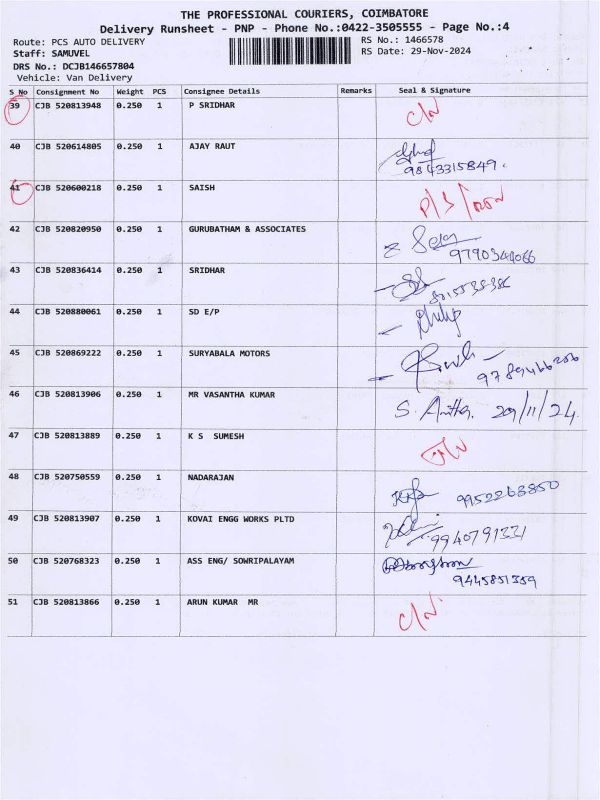 THE PROFESSIONAL COURIERS, COIMBATORE
Delivery Runsheet - PNP - Phone No.:0422-3505555 - Page No.:4
Route: PCS AUTO DELIVERY RS No.: 1466578
Staff: SAMUVEL RS Date: 29-Nov-2024
DRS No.: DCJB146657804
Vehicle: Van Delivery
S No Consignment No Weight PCS Consignee Details Remarks Seal & Signature
39 CJB 520813948 0.250 1 P SRIDHAR C/N
40 CJB 520614805 0.250 1 AJAY RAUT
9843315849.
41 CJB 520600218 0.250 1 SAISH
42 CJB 520820950 0.250 1 GURUBATHAM & ASSOCIATES
9790344066
43 CJB 520836414 0.250 1 SRIDHAR
44 CJB 520880061 0.250 1 SD E/P
45 CJB 520869222 0.250 1 SURYABALA MOTORS
9789466206
46 CJB 520813906 0.250 1 MR VASANTHA KUMAR S. Anitha. 29/11/24.
47 CJB 520813889 0.250 1 K S SUMESH
48 CJB 520750559 0.250 1 NADARAJAN 9952263850
49 CJB 520813907 0.250 1 KOVAI ENGG WORKS PLTD
9940791331
50 CJB 520768323 0.250 1 ASS ENG/ SOWRIPALAYAM
9445851359
51 CJB 520813866 0.250 1 ARUN KUMAR MR C/N